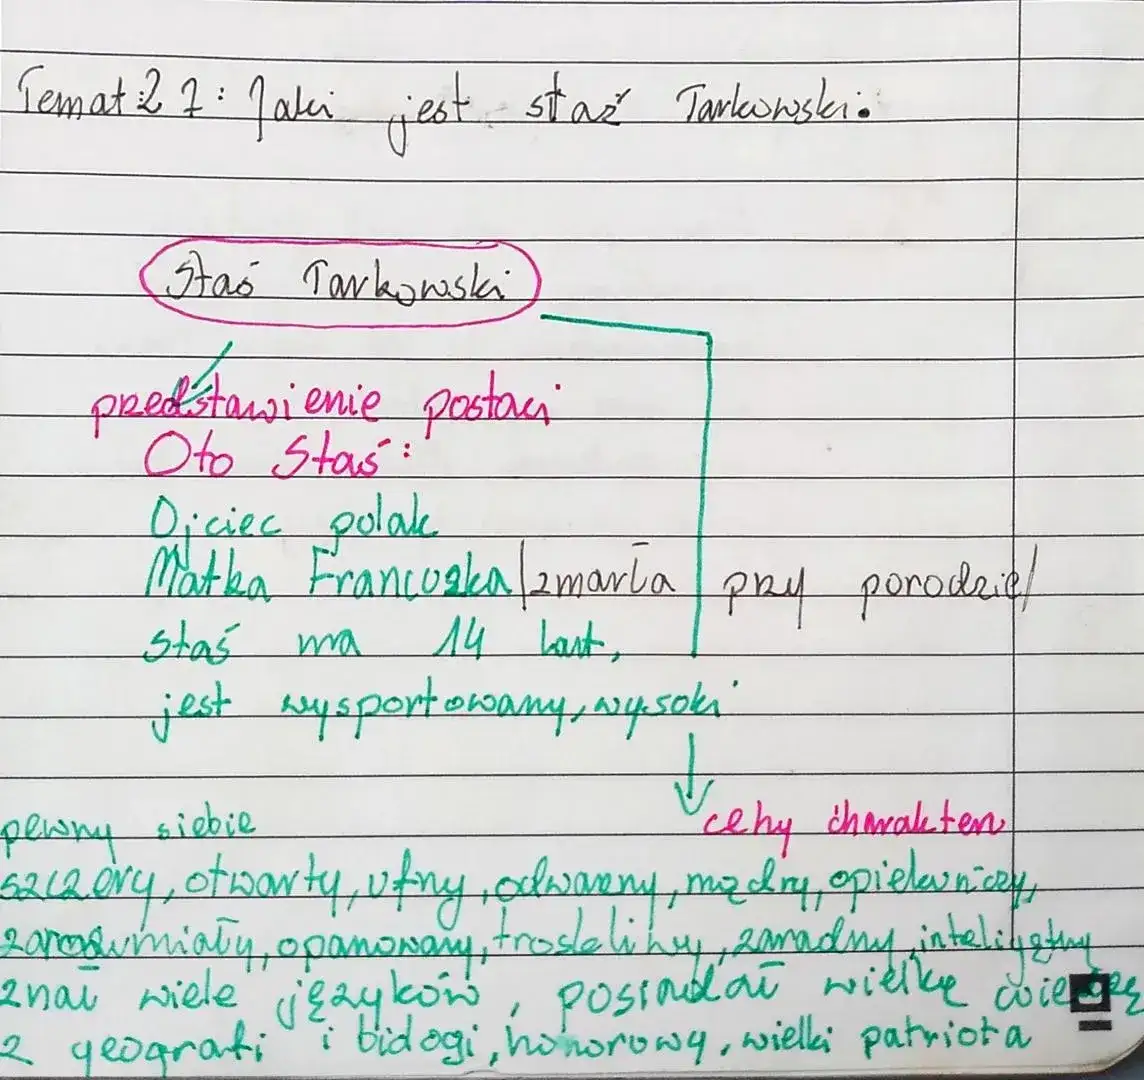 Temat 27: Jaki jest staś Tarkowski.
Staś Tarkowski
przedstawienie postaci
Oto Staś:
Ojciec polak
Matka Francuska/zmarła przy porodzie/
staś ma 14 lat,
jest wysportowany, wysoki
cechy charakteru
pewny siebie
szczery, otwarty, ufny, odważny, mądry, opiekuńczy,
zarozumiały, opanowany, troskliwy, zaradny, inteligętny
znał wiele języków, posiadał wielkę
z geografi i biologi, honorowy, wielki patriota